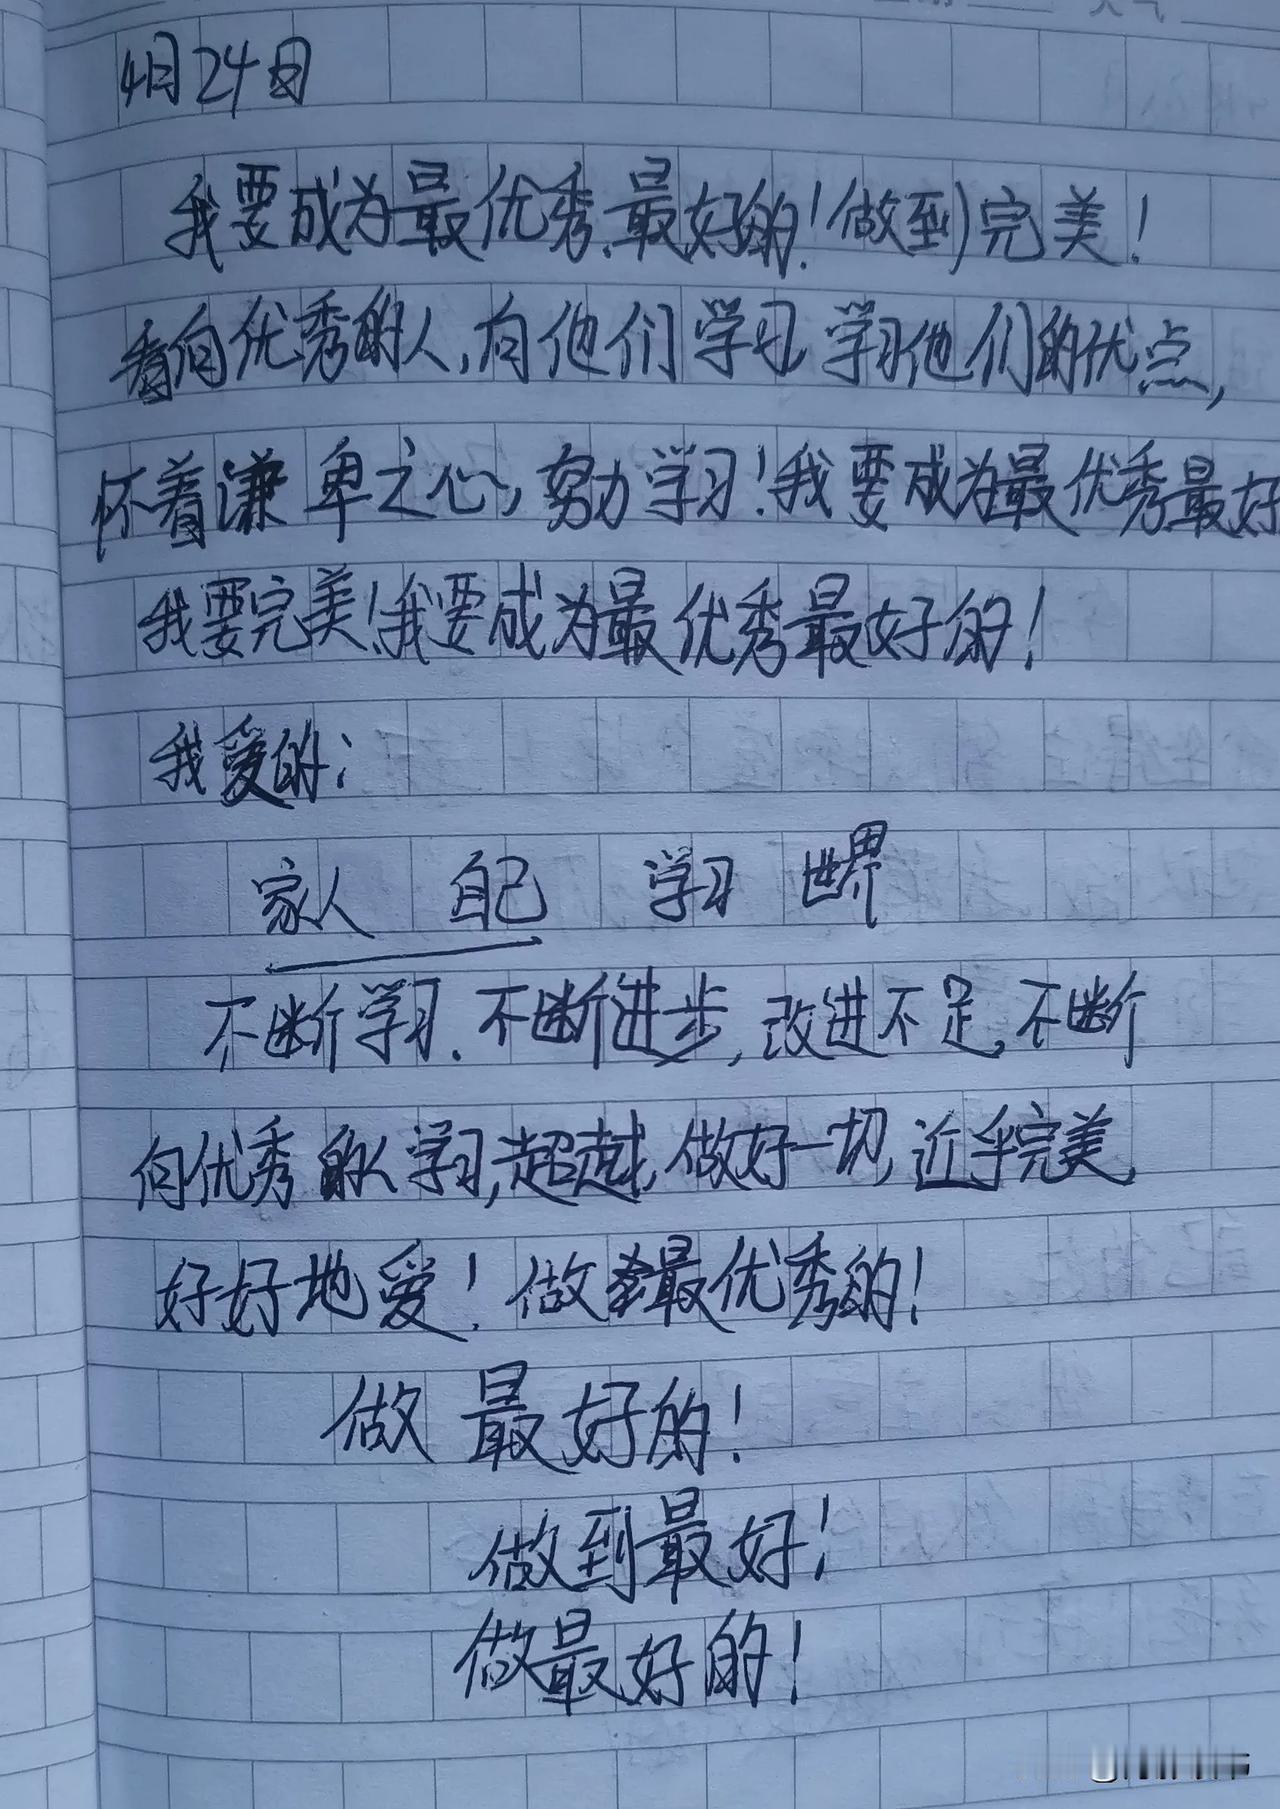 4月24日
我要成为最优秀、最好的！做到完美！
看向优秀的人，向他们学习，学习他们的优点，
怀着谦卑之心，努力学习！我要成为最优秀最好
我要完美！我要成为最优秀最好的！
我爱的：
家人 自己 学习 世界
不断学习、不断进步，改进不足，不断
向优秀的人学习，超越，做好一切，近乎完美，
好好地爱！做最优秀的！
做最好的！
做到最好！
做最好的！